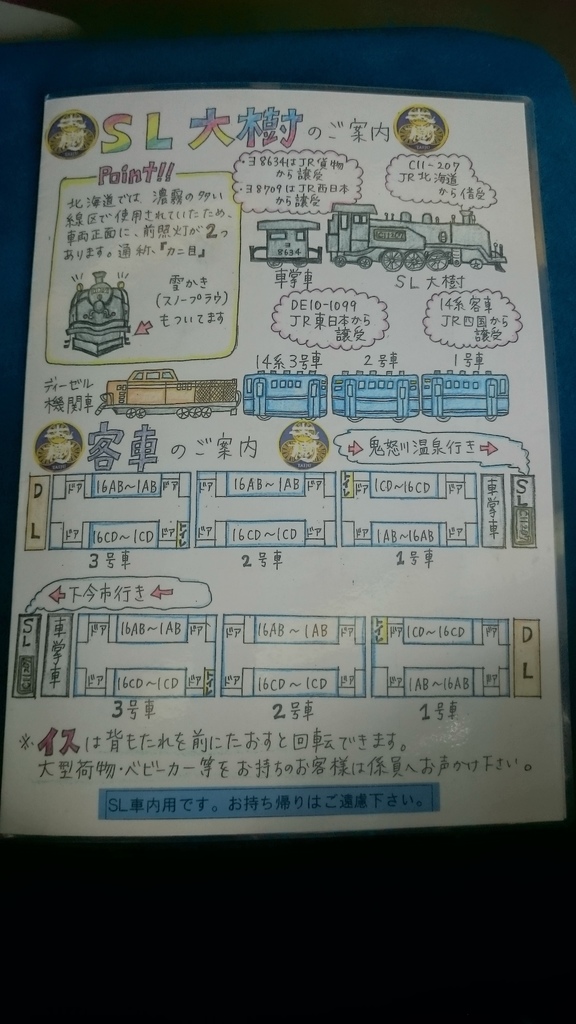 SL大樹のご案内
Point!!
北海道では、濃霧の多い
線区で使用されていたため、
車両正面に、前照灯が2つ
あります。通称、『カニ目』
雪かき
(スノープラウ)
もついてます
・ヨ8634はJR貨物
から譲受
・ヨ8709はJR西日本
から譲受
C11-207
JR北海道
から借受
ヨ
8634
車掌車
SL大樹
DE10-1099
JR東日本から
譲受
14系客車
JR四国から
譲受
ディーゼル
機関車
14系3号車 2号車 1号車
客車のご案内
→鬼怒川温泉行き→
DL ドア 16AB～1AB ドア 16AB～1AB トイレ 1CD～16CD ドア 車掌車 SL
ドア 16CD～1CD ドア トイレ 16CD～1CD ドア 1AB～16AB ドア
3号車 2号車 1号車
←下今市行き←
SL 車掌車 ドア 16AB～1AB ドア 16AB～1AB トイレ 1CD～16CD ドア DL
ドア 16CD～1CD ドア トイレ 16CD～1CD ドア 1AB～16AB ドア
3号車 2号車 1号車
※イスは背もたれを前にたおすと回転できます。
大型荷物・ベビーカー等をお持ちのお客様は係員へお声かけ下さい。
SL車内用です。お持ち帰りはご遠慮下さい。